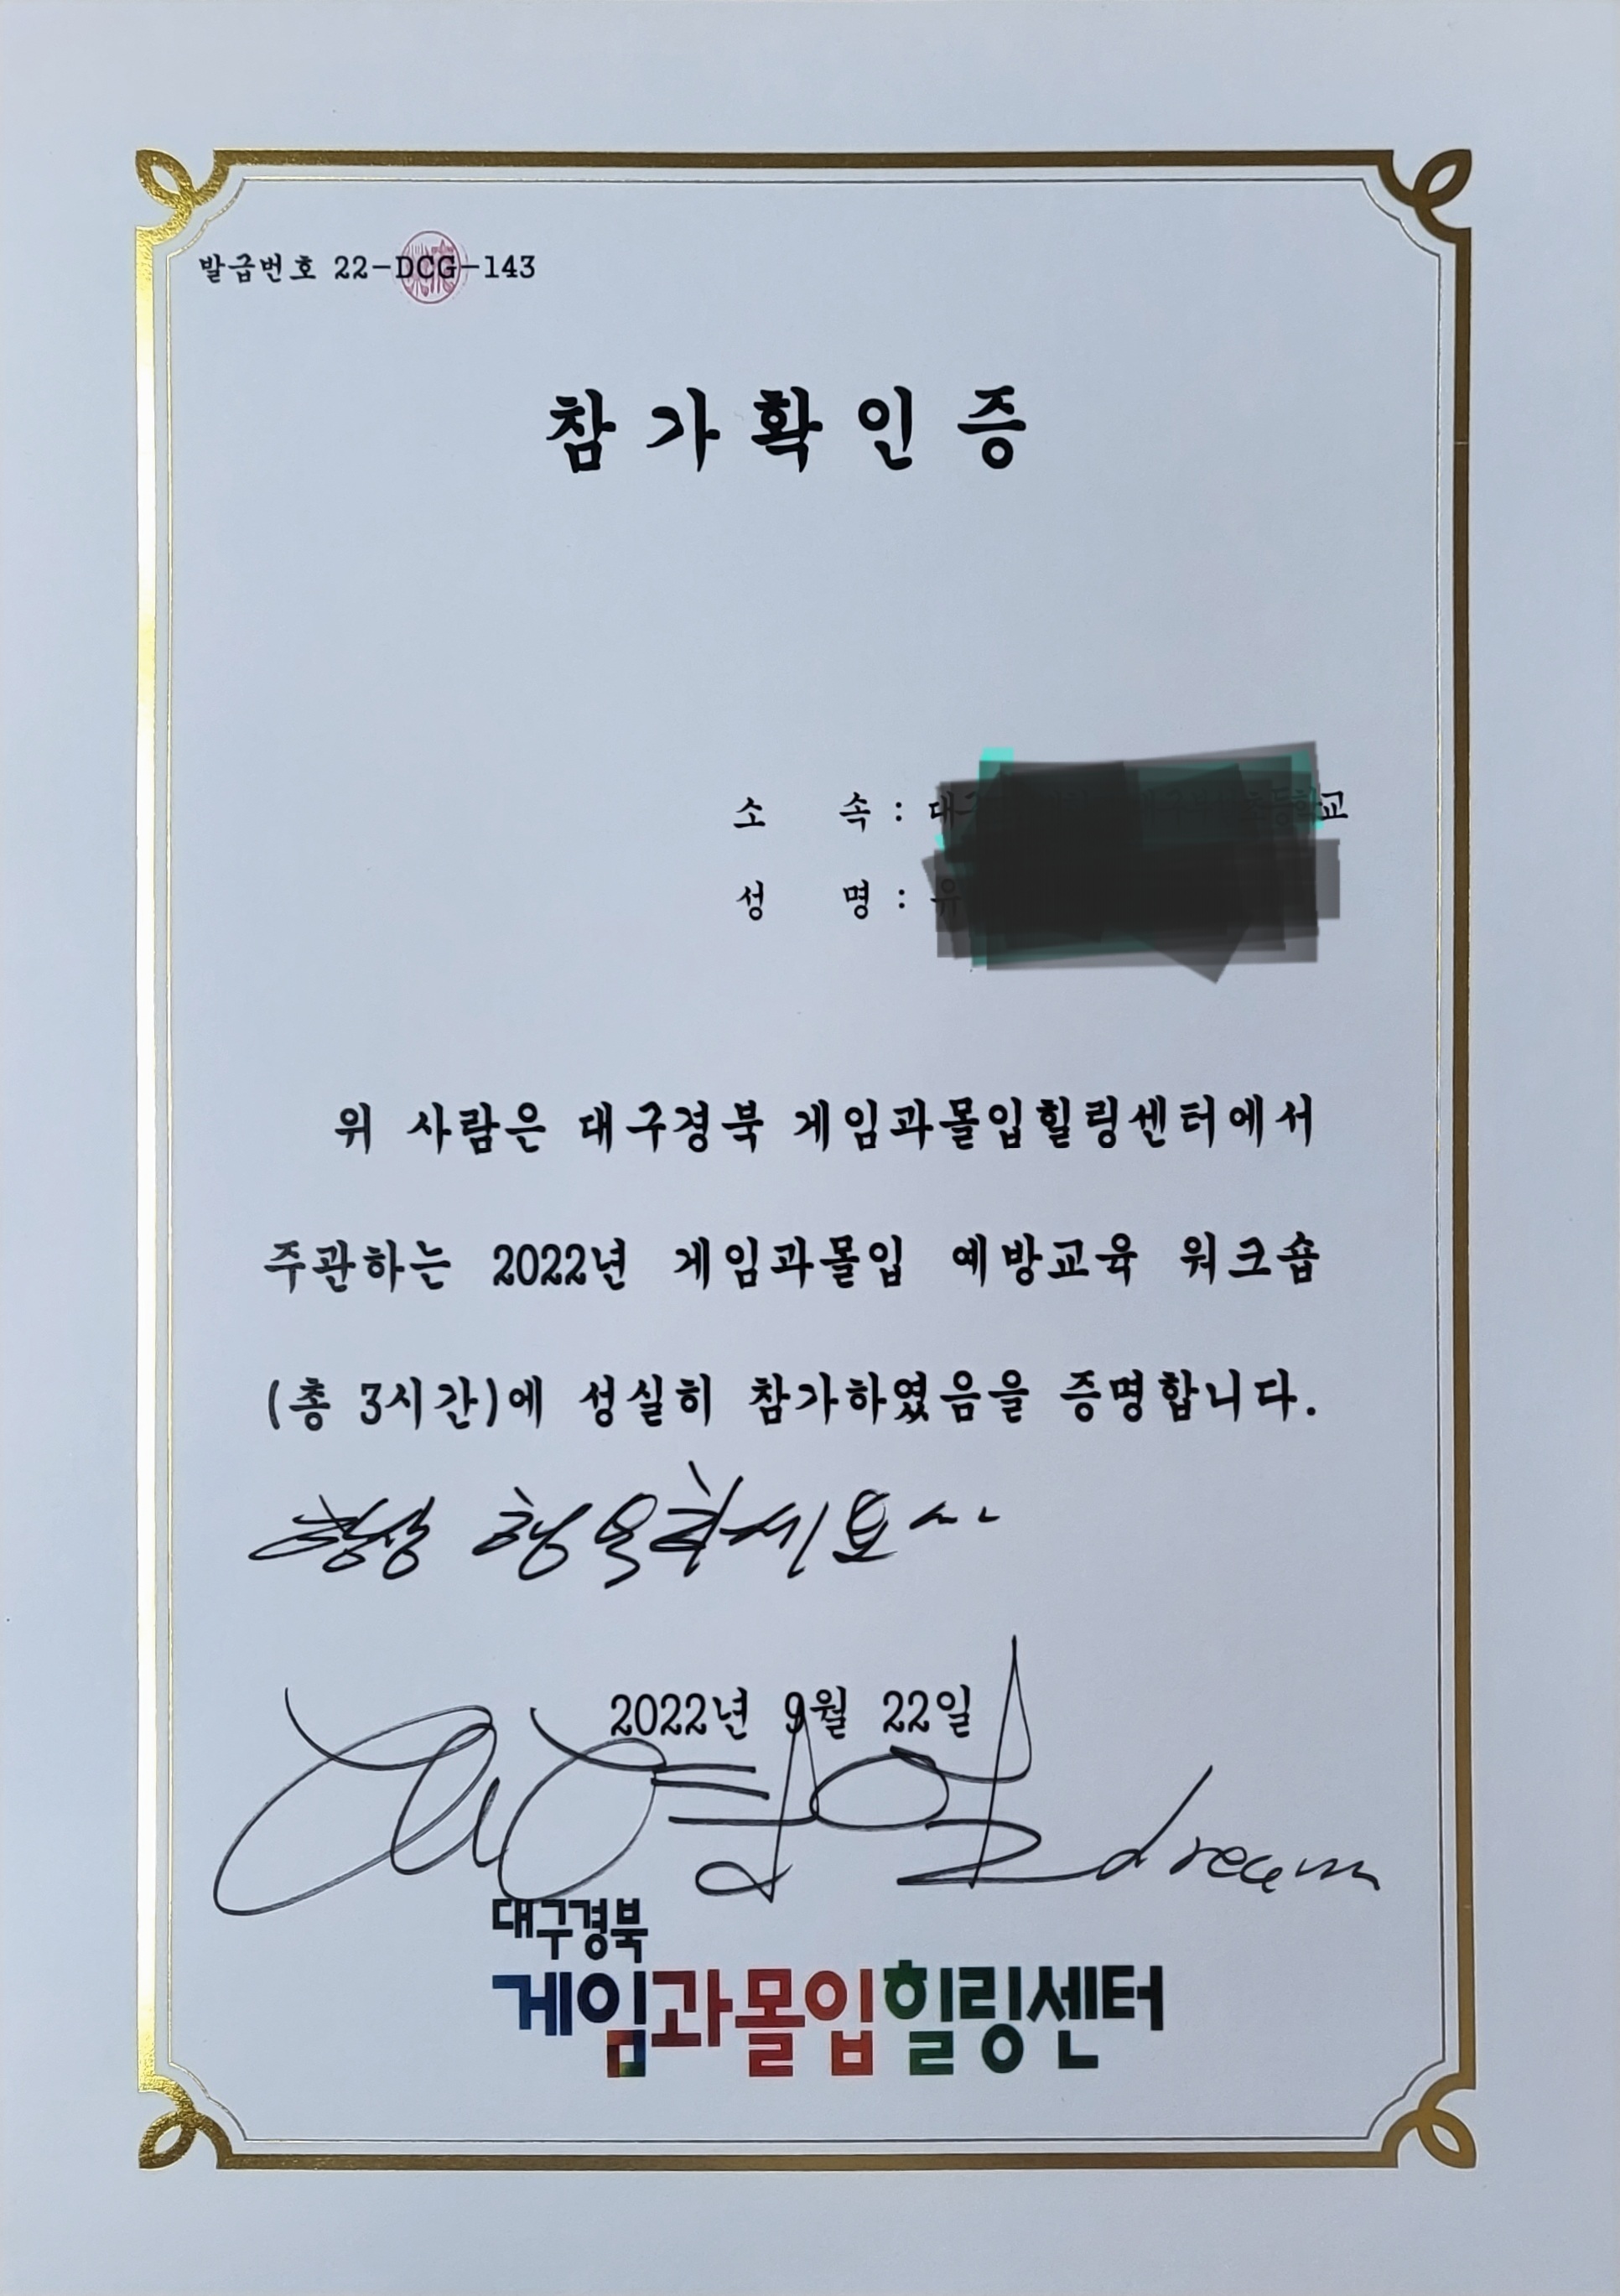 발급번호 22-DCG-143
참가확인증
소 속 :
성 명 :
위 사람은 대구경북 게임과몰입힐링센터에서
주관하는 2022년 게임과몰입 예방교육 워크숍
(총 3시간)에 성실히 참가하였음을 증명합니다.
항상 행복하세요~~
2022년 9월 22일
dream
대구경북
게임과몰입힐링센터